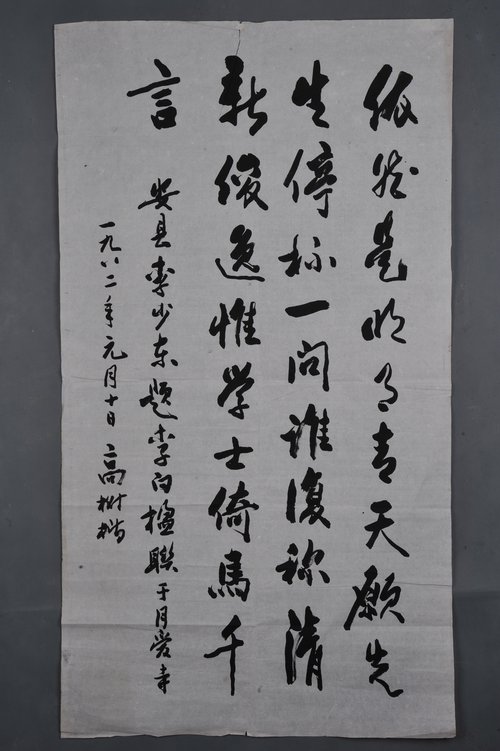 依然是明月青天愿先
生停杯一问谁復称清
新俊逸惟学士倚馬千
言
安县李少东题李白楹聯于月寺
一九八二年元月十日 高树楷